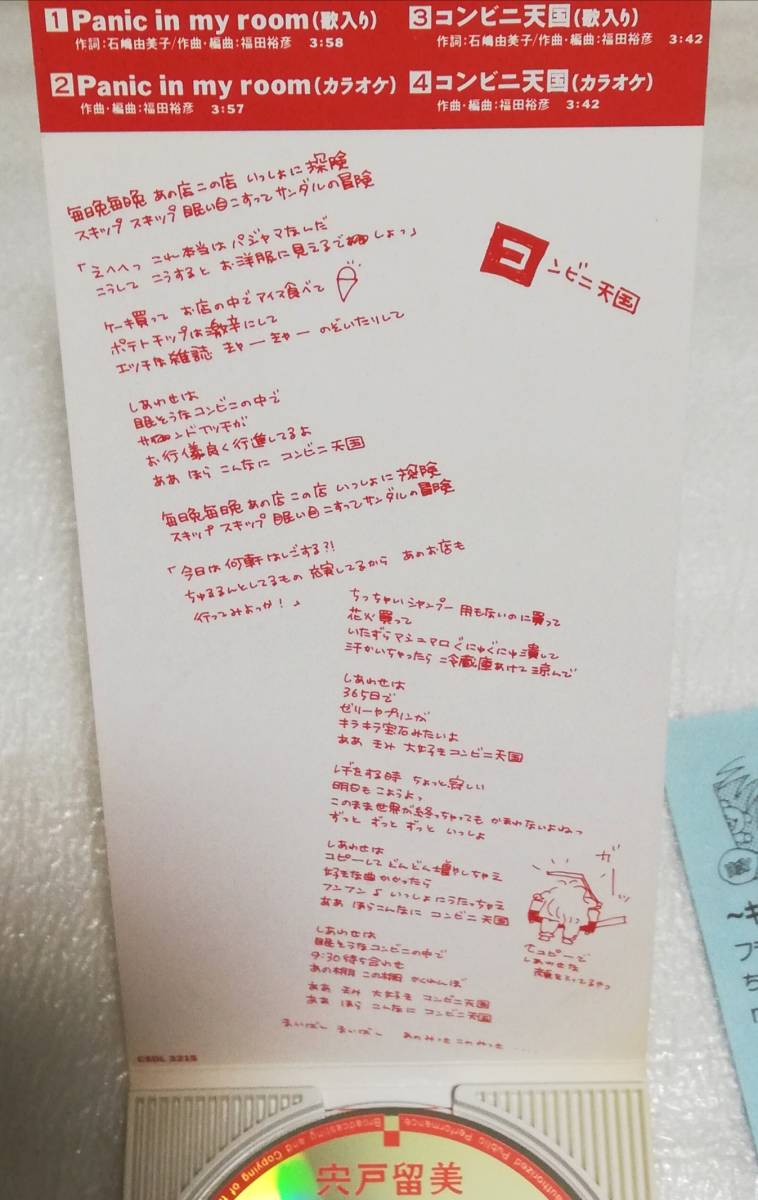 1 Panic in my room(歌入り)
作詞:石嶋由美子/作曲・編曲:福田裕彦 3:58
2 Panic in my room(カラオケ)
作曲・編曲:福田裕彦 3:57
3 コンビニ天国(歌入り)
作詞:石嶋由美子/作曲・編曲:福田裕彦 3:42
4 コンビニ天国(カラオケ)
作曲・編曲:福田裕彦 3:42
コンビニ天国
毎日晩毎日晩 あの店この店 いっしょに探険
スキップ スキップ 眠い目こすってサンダルの冒険
「えへへっ これ本当は パジャマなんだ
こうして こうすると お洋服に見えるでしょっ」
ケーキ買って お店の中でアイス食べて
ポテトチップは激辛にして
エッチな雑誌 きゃー きゃー のぞいたりして
しあわせは
眠そうなコンビニの中で
サンドイッチが
お行儀良く行進してるよ
ああ ほら こんなに コンビニ天国
毎日晩毎日晩 あの店この店 いっしょに探険
スキップ スキップ 眠い目こすってサンダルの冒険
「今日は何軒はしごする?!
ちゅるるんとしてるもの 充実してるから あのお店も
行ってみよっか!」
ちっちゃいシャンプー 用もないのに買って
花火買って
いたずらマシュマロぐにゅぐにゅ潰して
汗かいちゃったら 冷蔵庫あけて涼んで
しあわせは
365日で
ゼリーやプリンが
キラキラ宝石みたいよ
ああ きみ 大好きコンビニ天国
レヂをする時 ちょっと寂しい
明日もこようよっ
このまま世界が終っちゃっても かまわないよねっ
ずっと ずっと ずっと いっしょ
しあわせは
コピーして どんどん増やしちゃえ
好きな曲かかったら
フンフン♪ いっしょにうたっちゃえ
ああ ほらこんなに コンビニ天国
しあわせは
眠そうなコンビニの中で
9:30待ち合わせ
あの棚 この棚 かくれんぼ
ああ きみ 大好き コンビニ天国
ああ ほら こんなに コンビニ天国
ガーッ
コピーで
しあわせな
CSDL 3215
宍戸留美
Authorized Public Performance
Broadcasting and Copying of